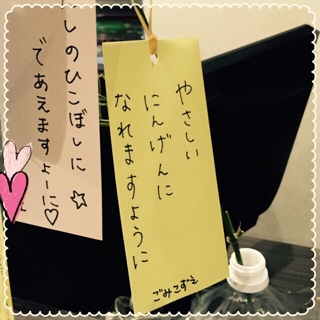 やさしい
にんげんに
なれますように
ごみこずえ
しのひこぼしに
であえますよーに♡☆